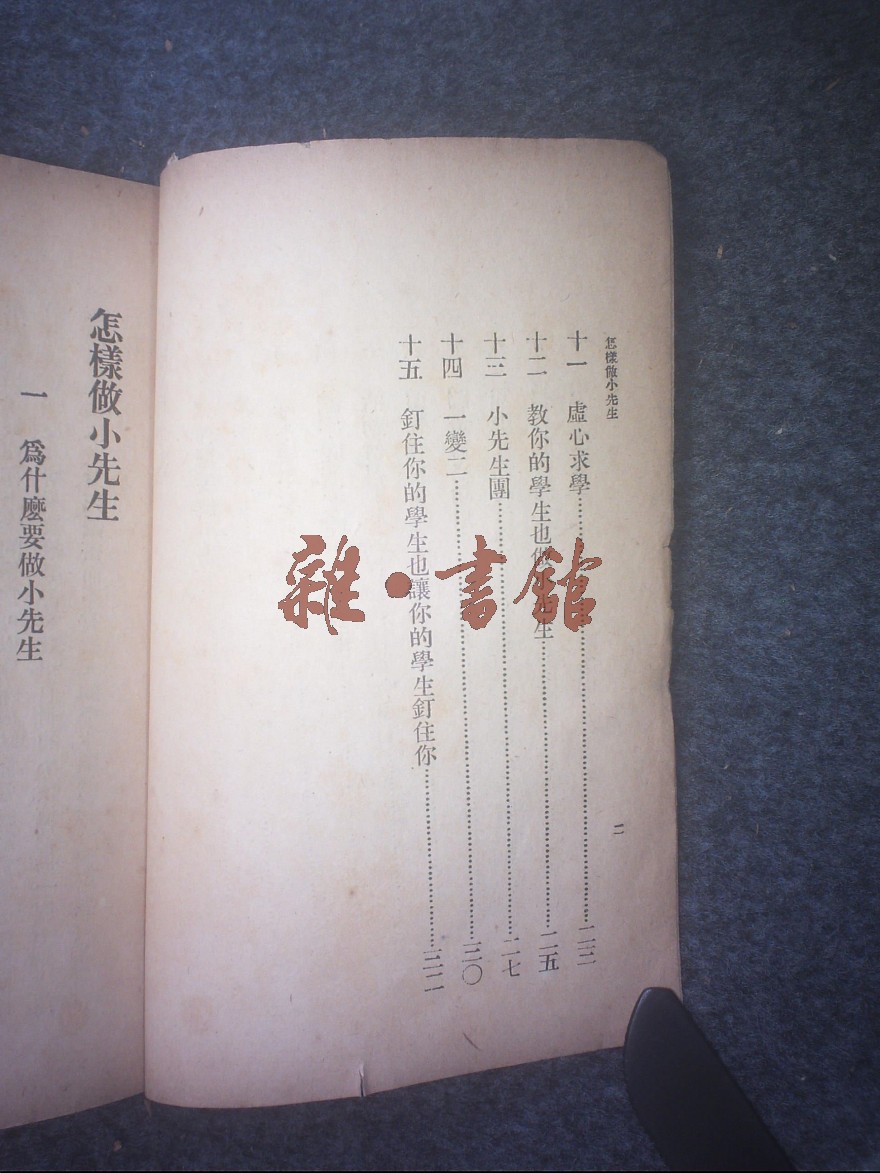 怎樣做小先生
二
十一 虛心求學……二三
十二 教你的學生也做小先生……二五
十三 小先生團……二七
十四 一變二……三〇
十五 釘住你的學生也讓你的學生釘住你……三二
怎樣做小先生
一 爲什麽要做小先生
雜·書館